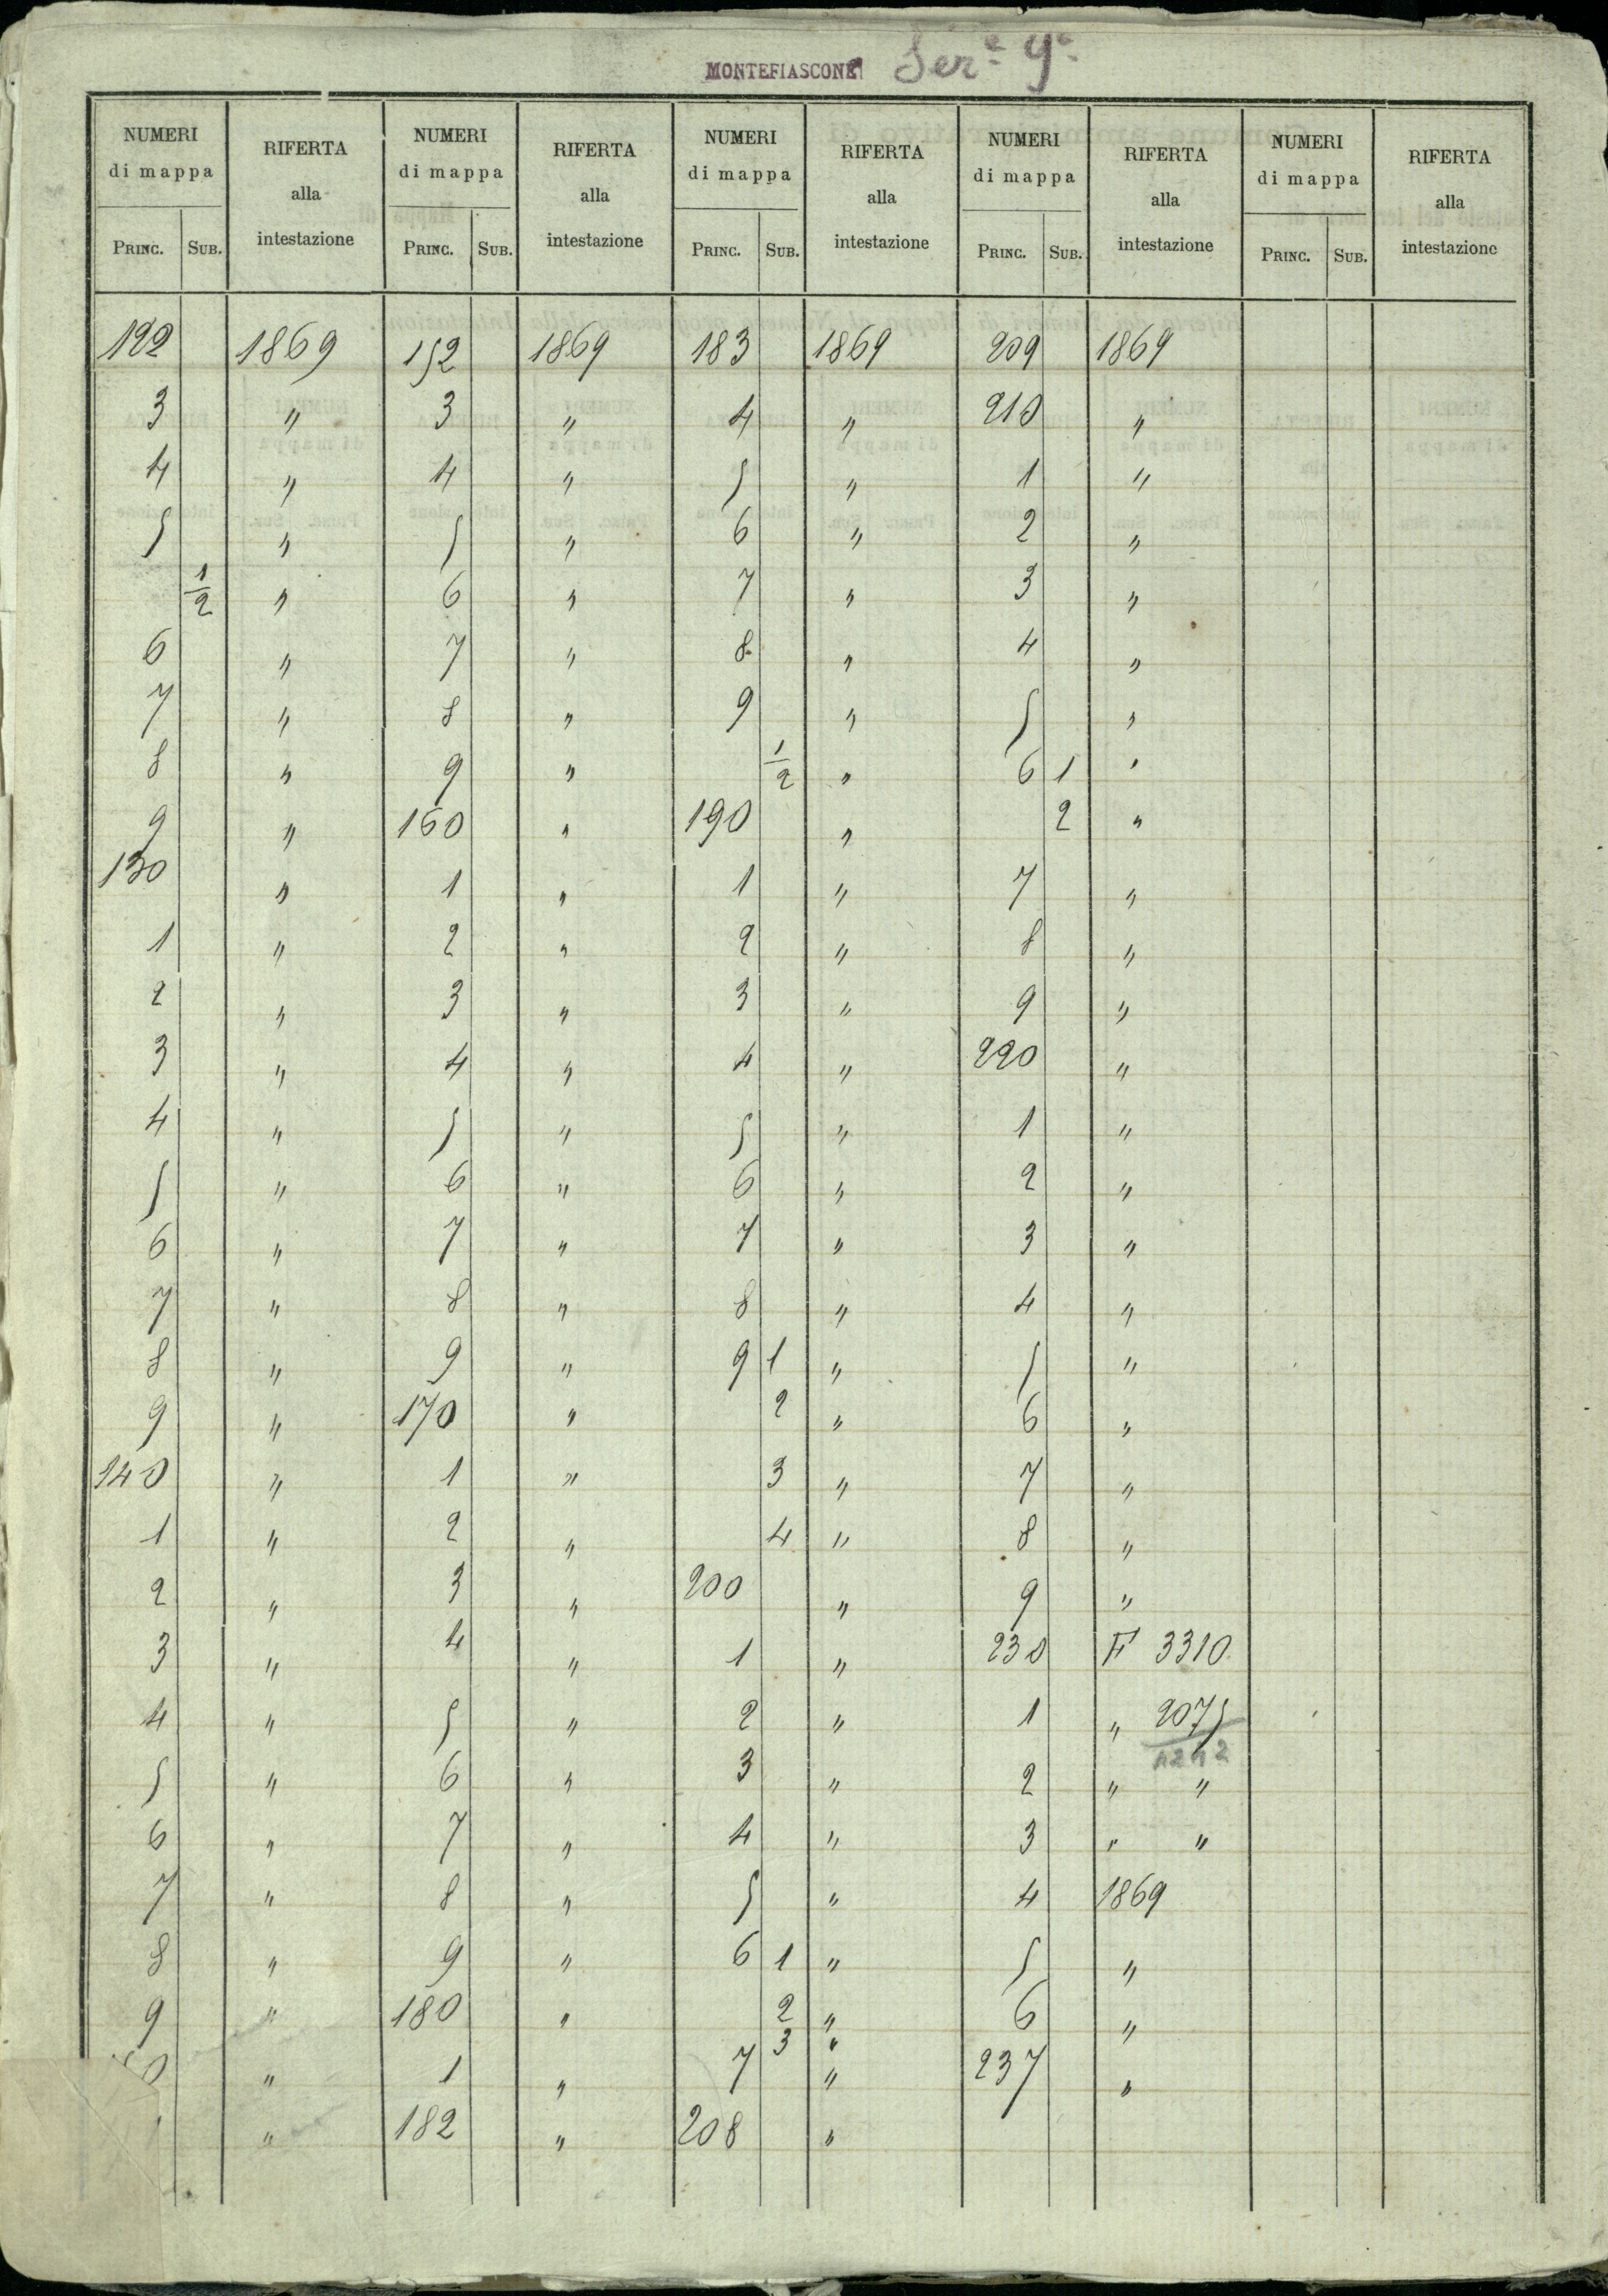 MONTEFIASCONE Ser.e 9a
NUMERI di mappa | RIFERTA alla intestazione | NUMERI di mappa | RIFERTA alla intestazione | NUMERI di mappa | RIFERTA alla intestazione | NUMERI di mappa | RIFERTA alla intestazione | NUMERI di mappa | RIFERTA alla intestazione
PRINC. | SUB. | PRINC. | SUB. | PRINC. | SUB. | PRINC. | SUB. | PRINC. | SUB.
122 | | 1869 | 152 | | 1869 | 183 | | 1869 | 209 | | 1869
3 | | " | 3 | | " | 4 | | " | 210 | | "
4 | | " | 4 | | " | 5 | | " | 1 | | "
5 | | " | 5 | | " | 6 | | " | 2 | | "
| 1/2 | " | 6 | | " | 7 | | " | 3 | | "
6 | | " | 7 | | " | 8 | | " | 4 | | "
7 | | " | 8 | | " | 9 | | " | 5 | | "
8 | | " | 9 | | " | | 1/2 | " | 6 | 1 | "
9 | | " | 160 | | " | 190 | | " | | 2 | "
130 | | " | 1 | | " | 1 | | " | 7 | | "
1 | | " | 2 | | " | 2 | | " | 8 | | "
2 | | " | 3 | | " | 3 | | " | 9 | | "
3 | | " | 4 | | " | 4 | | " | 220 | | "
4 | | " | 5 | | " | 5 | | " | 1 | | "
5 | | " | 6 | | " | 6 | | " | 2 | | "
6 | | " | 7 | | " | 7 | | " | 3 | | "
7 | | " | 8 | | " | 8 | | " | 4 | | "
8 | | " | 9 | | " | 9 | 1 | " | 5 | | "
9 | | " | 170 | | " | | 2 | " | 6 | | "
140 | | " | 1 | | " | | 3 | " | 7 | | "
1 | | " | 2 | | " | | 4 | " | 8 | | "
2 | | " | 3 | | " | 200 | | " | 9 | | "
3 | | " | 4 | | " | 1 | | " | 230 | | F 3310
4 | | " | 5 | | " | 2 | | " | 1 | | " 2075
5 | | " | 6 | | " | 3 | | " | 2 | | " "
6 | | " | 7 | | " | 4 | | " | 3 | | " "
7 | | " | 8 | | " | 5 | | " | 4 | | 1869
8 | | " | 9 | | " | 6 | 1 | " | 5 | | "
9 | | " | 180 | | " | | 2 | " | 6 | | "
| 3 | "
0 | | " | 1 | | " | 7 | | " | 237 | | "
| | " | 182 | | " | 208 | | "